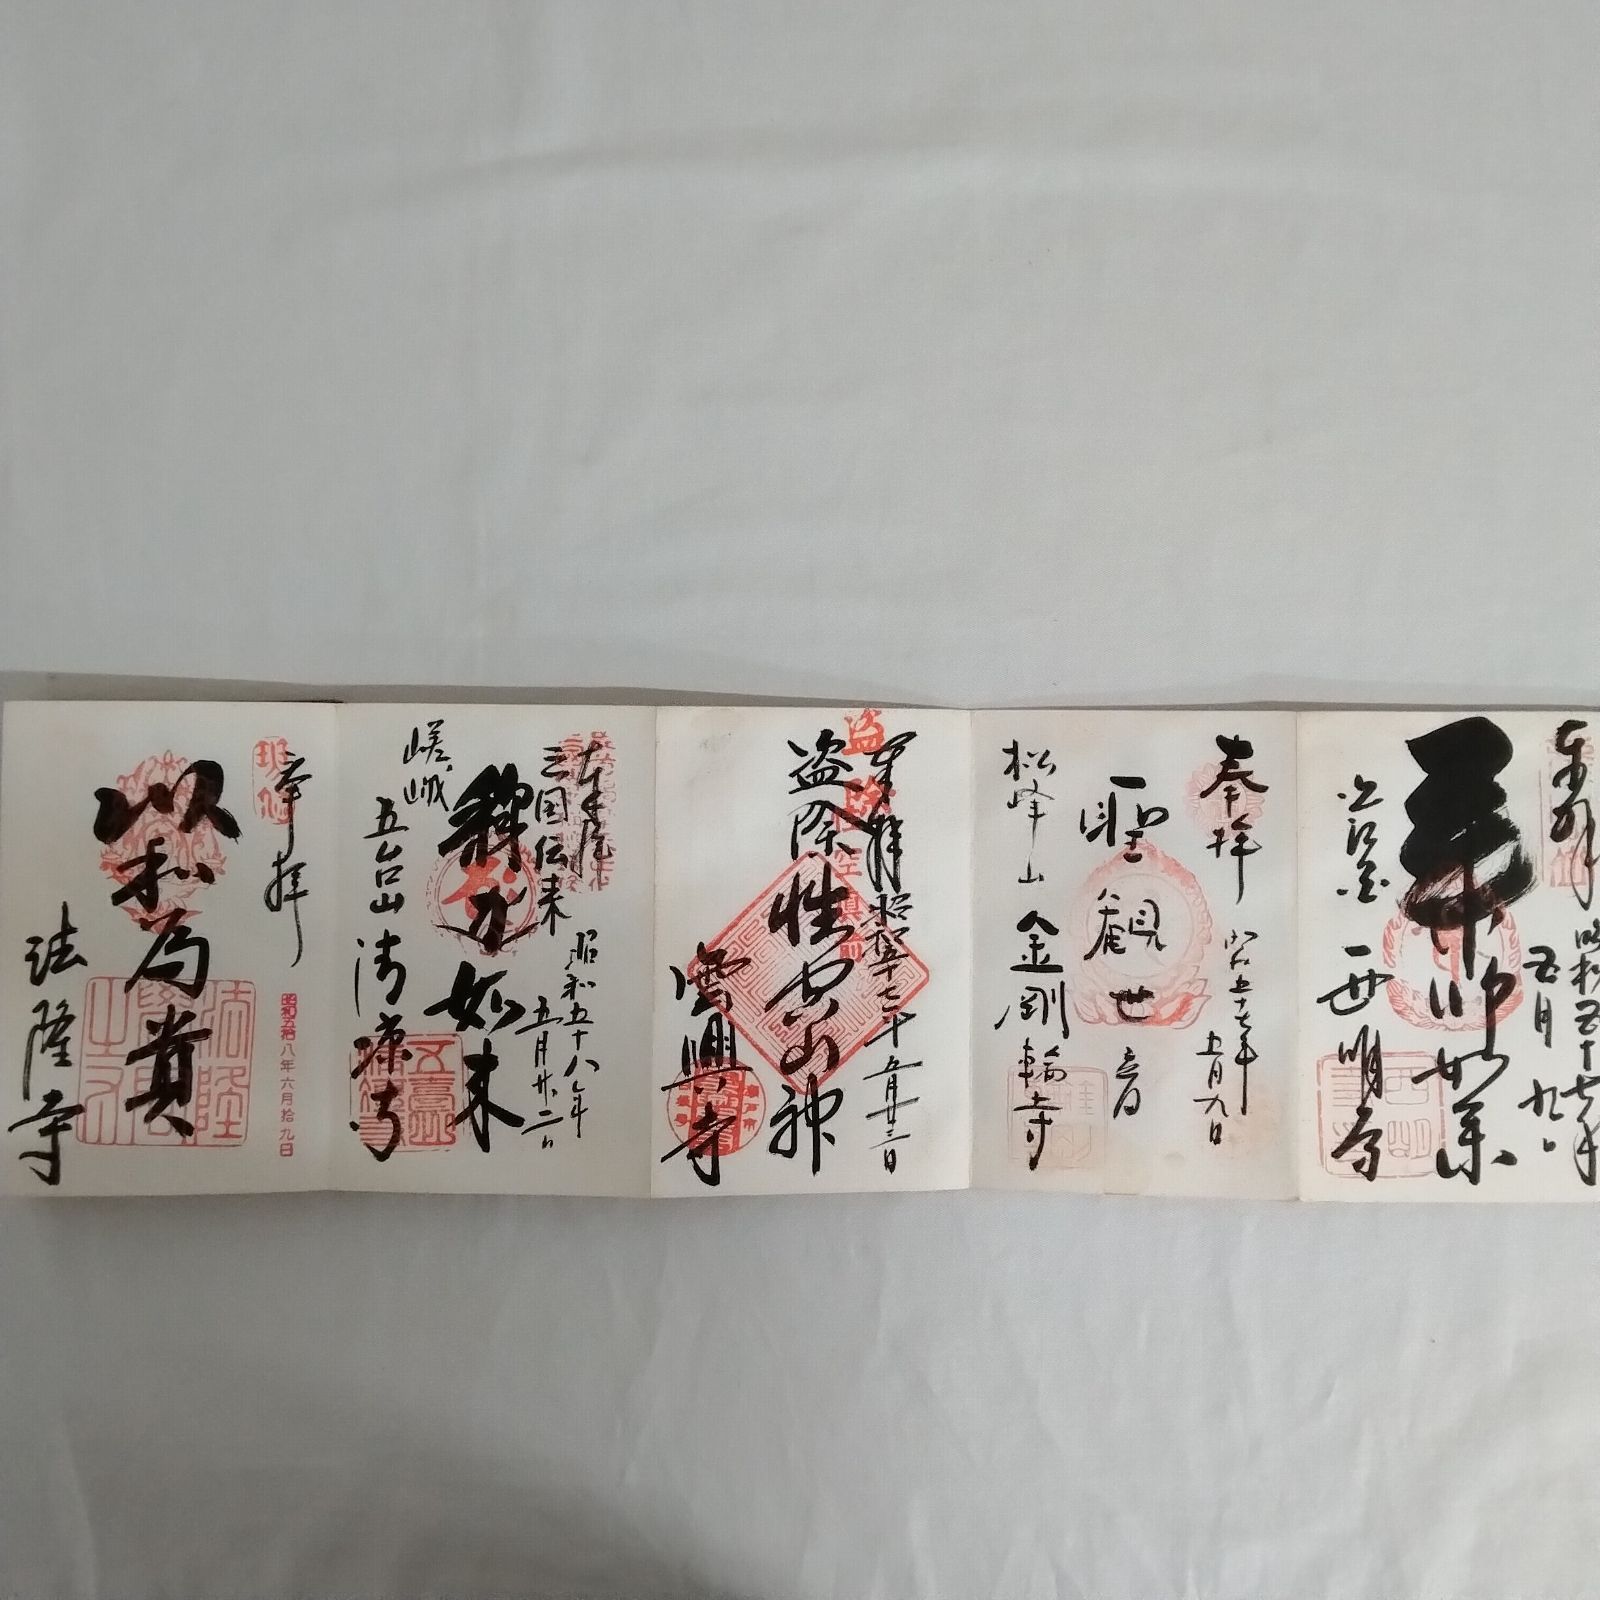 奉拝
昭和五十七年
五月九日
薬師如来
西明寺
奉拝
昭和五十七年
五月九日
聖観世音
松峰山 金剛輪寺
奉拝 昭和五十七年五月廿三日
盗除性空山神
雲興寺
三国伝来
昭和五十八年
五月廿二日
釋迦如来
嵯峨
五台山 清凉寺
奉拝
昭和五拾八年六月拾九日
以和為貴
法隆寺